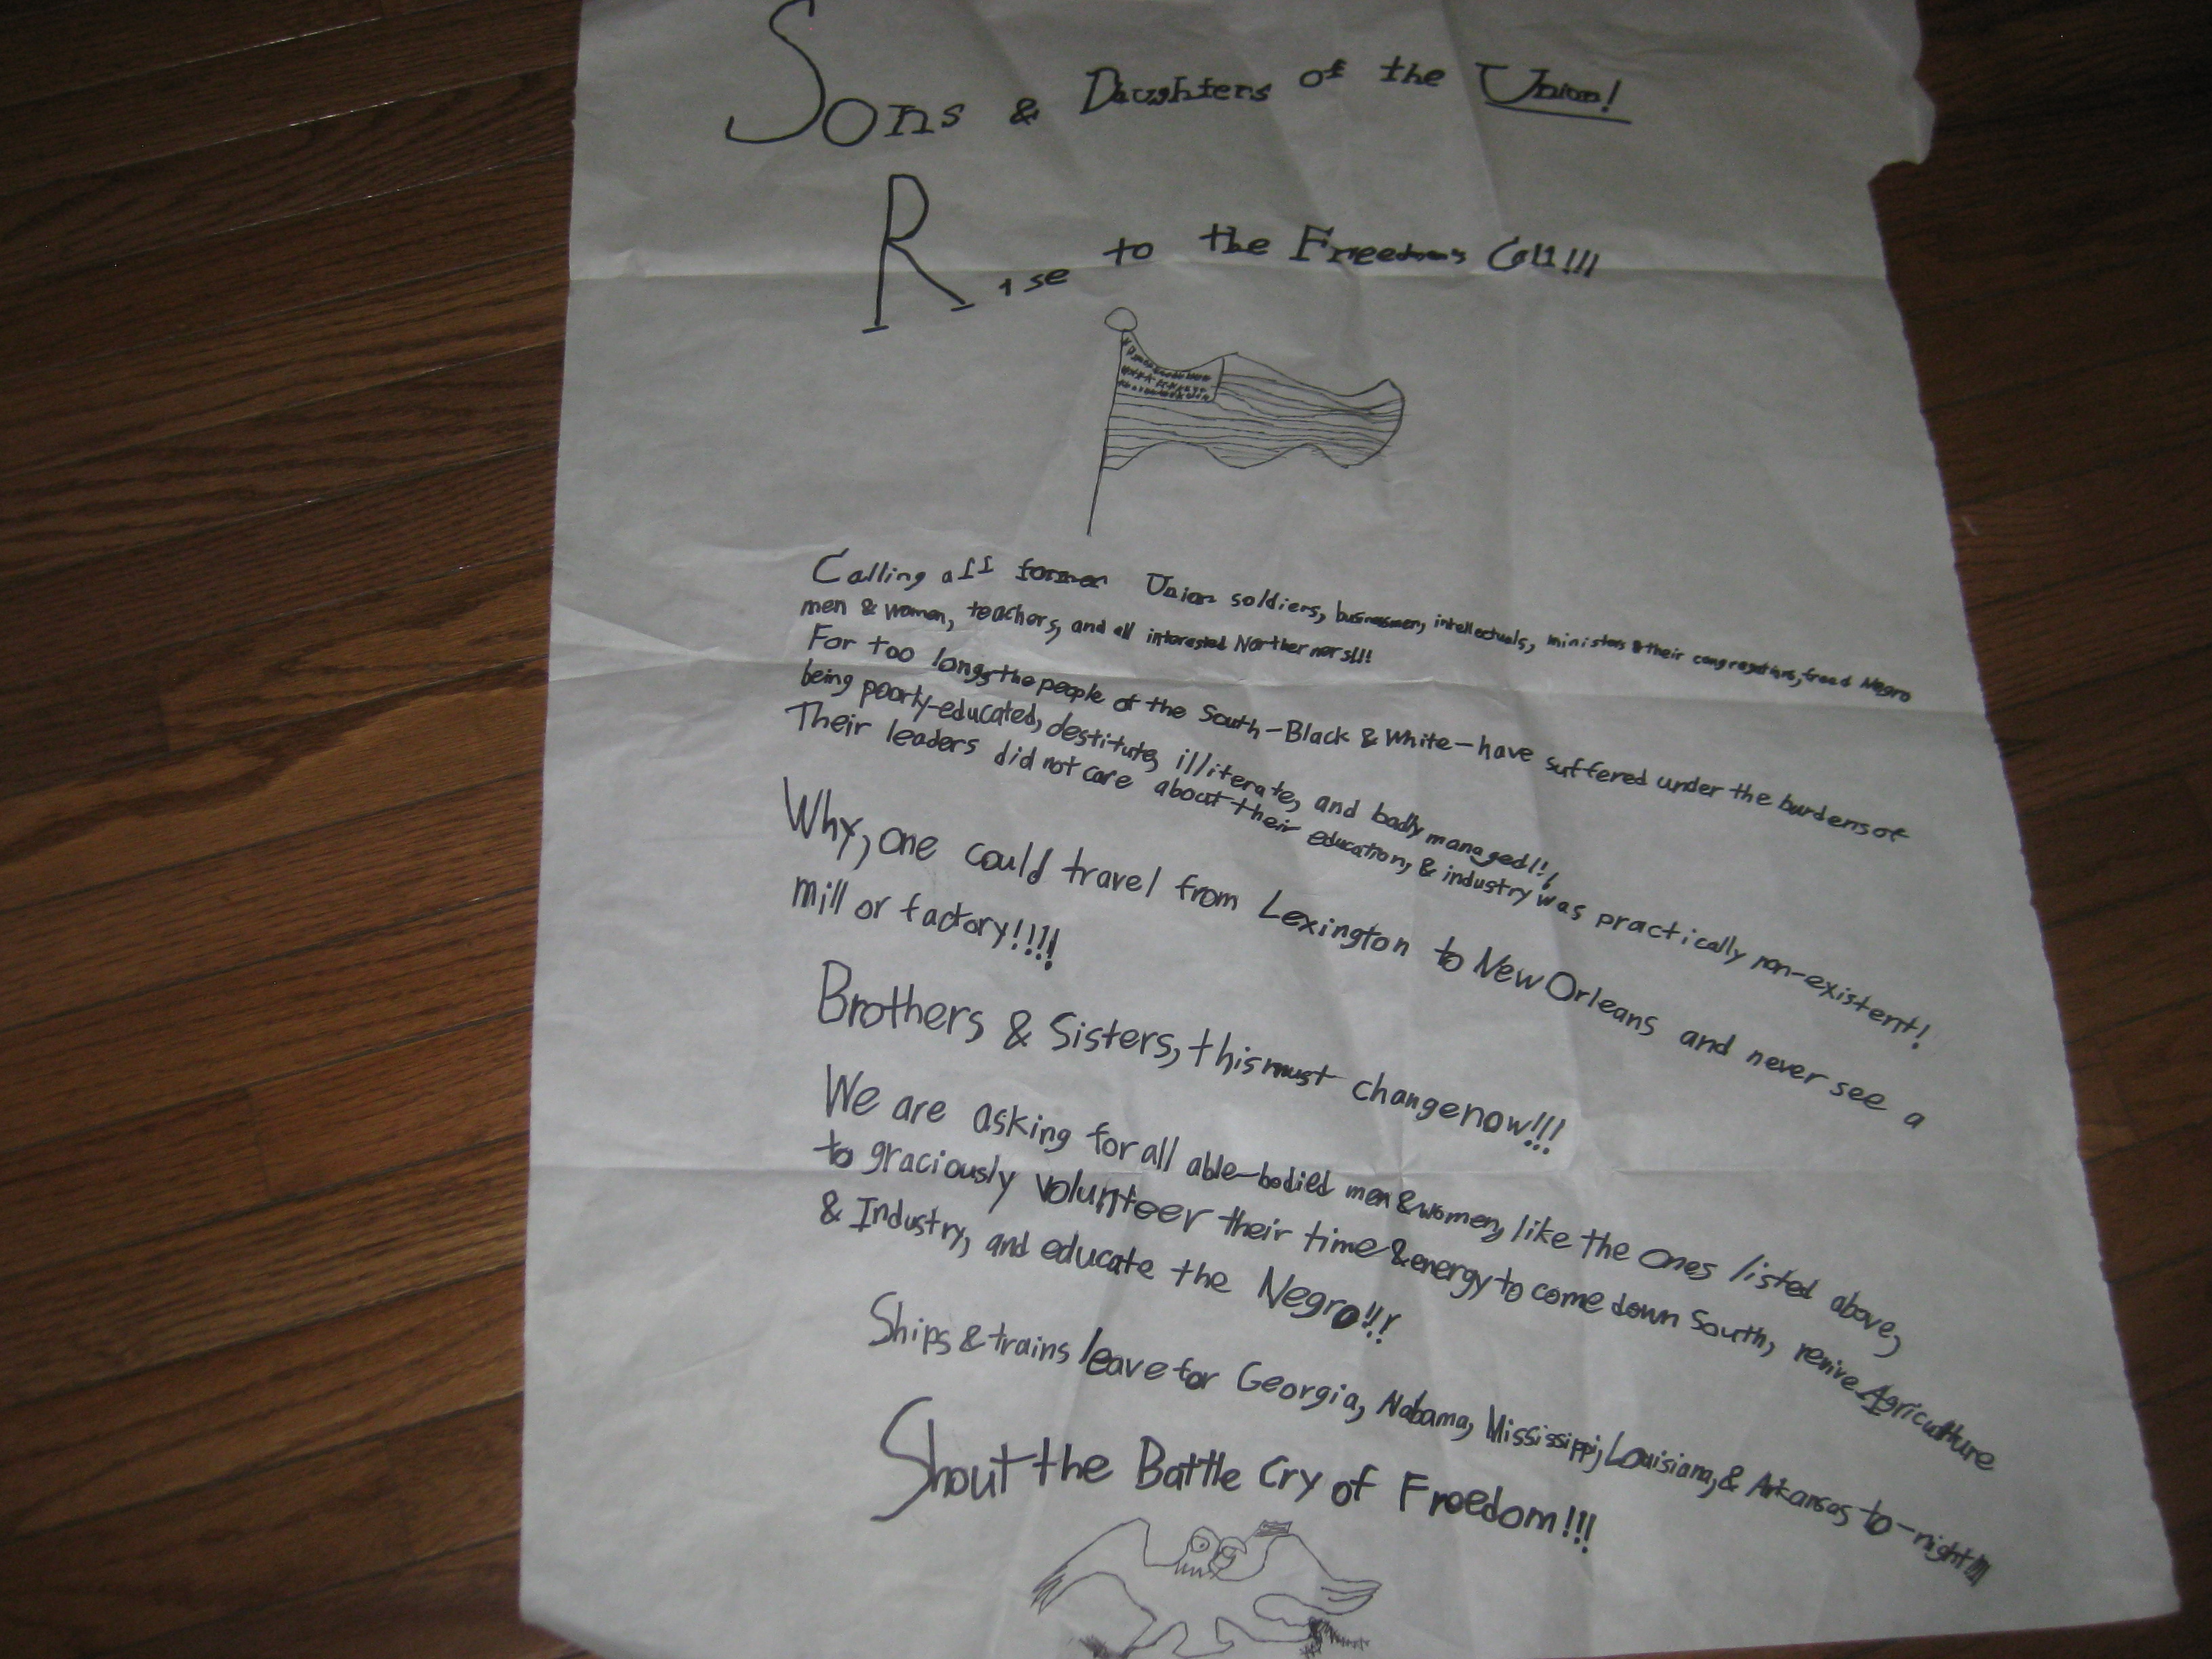 Sons & Daughters of the Union!
Rise to the Freedom's Call!!!
Calling all former Union soldiers, businessmen, intellectuals, ministers & their congregations, freed Negro
men & women, teachers, and all interested Northerners!!!
For too long, the people of the South - Black & White - have suffered under the burdens of
being poorly-educated, destitute, illiterate, and badly managed!!!
Their leaders did not care about their education, & industry was practically non-existent!
Why, one could travel from Lexington to New Orleans and never see a
mill or factory!!!!
Brothers & Sisters, this must change now!!!
We are asking for all able-bodied men & women, like the ones listed above,
to graciously volunteer their time & energy to come down South, revive Agriculture
& Industry, and educate the Negro!!!
Ships & trains leave for Georgia, Alabama, Mississippi, Louisiana, & Arkansas to-night!!!
Shout the Battle Cry of Freedom!!!